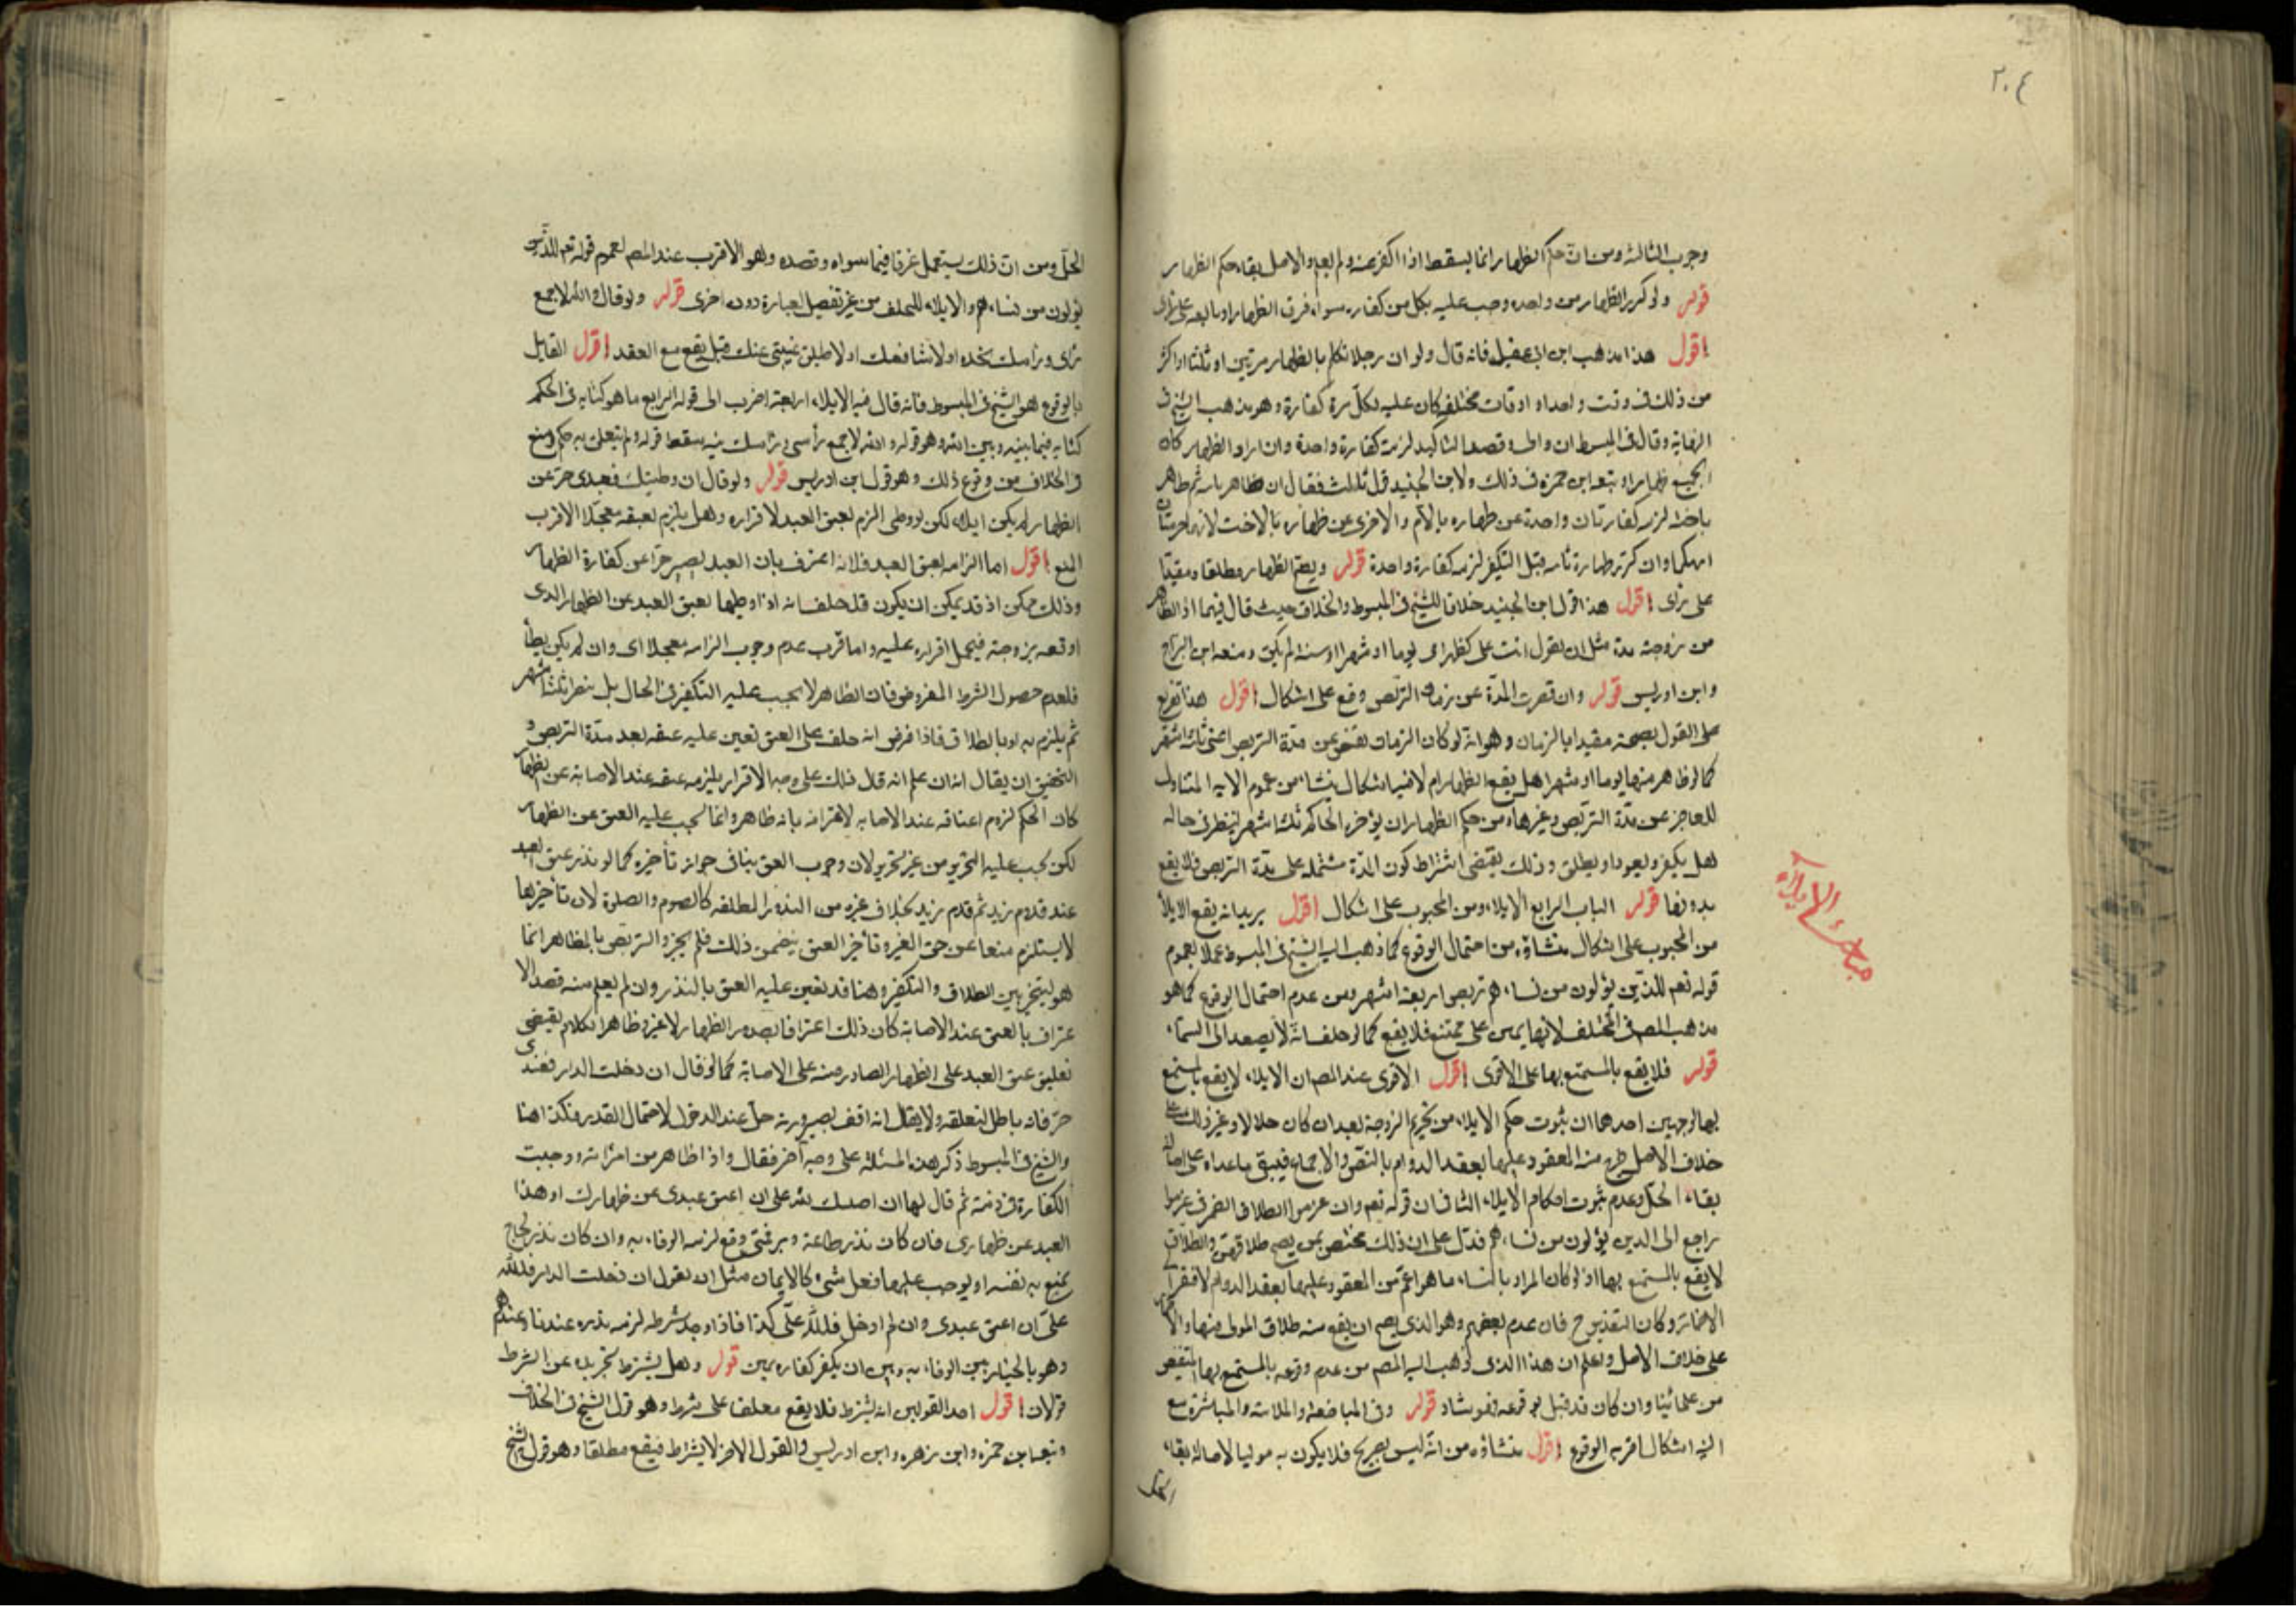 ٢٠٤
وجوب الثالثة ومن ان حكم الظهار انما يسقط اذا كفر عنه ولم يعد والاصل بقاء حكم الظهار
قوله ولو كرر الظهار من واحده وجب عليه بكل من كفاره سواء فرق الظهار او تابعه على راى
اقول هذا مذهب ابن ابى عقيل فانه قال ولو ان رجلا تكلم بالظهار مرتين او ثلثا او اكثر
من ذلك فى وقت واحد او اوقات مختلفه كان عليه لكل مرة كفارة وهو مذهب الشيخ فى
النهاية وقال فى المبسوط ان والى وقصد التاكيد لزمت كفارة واحدة وان اراد الظهار كان
الجميع ظهارا وتبعه ابن حمزه فى ذلك ولابن الجنيد قول ثالث فقال ان ظاهر بامه ثم ظاهر
باخته لزمه كفارتان واحدة عن ظهاره بالام والاخرى عن ظهاره بالاخت لانهما حرمتان
انتهكهما وان كرر ظهاره بامه قبل التكفير لزمه كفارة واحدة قوله ويصح الظهار مطلقا ومقيدا
على راى اقول هذا قول ابن الجنيد خلافا للشيخ فى المبسوط والخلاف حيث قال فيهما اذا ظاهر
من زوجته مدة مثل ان يقول انت على كظهر امى يوما او شهرا او سنة لم يكن ومنعه ابن البراج
وابن ادريس قوله وان قصرت المدة عن زمان التربص وقع على اشكال اقول هذا تفريع
على القول بصحته مقيدا بالزمان وهو انه لو كان الزمان يقصر عن مدة التربص اعنى ثلثة اشهر
كما لو ظاهر منها يوما او شهرا هل يقع الظهار ام لا فيه اشكال ينشا من عموم الايه المتناول
للعاجز عن مدة التربص وغيرها ومن حكم الظهار ان يؤخره الحاكم ثلثة اشهر لينظر فى حاله
هل يكفر ويعود او يطلق وذلك يقتضى اشتراط كون المدة مشتمله على مدة التربص فلا يقع
بدونها قوله الباب الرابع الايلاء ومن المجبوب على اشكال اقول يريد انه يقع الايلاء
من المجبوب على اشكال منشاؤه من احتمال الوقوع كما ذهب اليه الشيخ فى المبسوط عملا بعموم
قوله تعم للذين يؤلون من نساءهم تربص اربعة اشهر ومن عدم احتمال الوقوع كما هو
مذهب المصر فى المختلف لانها يمين على ممتنع فلا يقع كما لو حلف انه لا يصعد الى السماء
قوله فلا يقع بالمستمتع بها على الاقوى اقول الاقوى عند المصر ان الايلاء لا يقع بالمستمتع
بها لوجهين احدهما ان ثبوت حكم الايلاء من تحريم الزوجة بعد ان كان حلالا وغير ذلك على
خلاف الاصل خرج منه المعقود عليها بعقد الدوام بالنص والاجماع فيبقى ما عداه على اصالة
بقاء الحل وعدم ثبوت احكام الايلاء الثانى ان قوله تعم وان عزموا الطلاق الضمير فى عزموا
راجع الى الذين يؤلون من نساءهم فدل على ان ذلك مختص بمن يصح طلاقهن والطلاق
لا يقع بالمستمتع بها اذ لو كان المراد بالنساء ما هو اعم من المعقود عليها بعقد الدوام لافتقر الى
الاضمار وكان التقدير ح فان عدم بعضهم وهو الذى يصح ان يقع منه طلاق المولى منها والاضمار
على خلاف الاصل واعلم ان هذا الذى ذهب اليه المصر من عدم وقوعه بالمستمتع بها
من علمائنا وان كان قد قيل بوقوعه فهو شاذ قوله وفى المباضعه والملامسه والمباشرة مع
النية اشكال اقربه الوقوع اقول منشاؤه من انه ليس بصريح فلا يكون به موليا لاصالة بقاء
الحل
مباحث الايلاء
الحل ومن ان ذلك يستعمل عرفا فيما سواه وقصده وهو الاقرب عند المصر لعموم قوله تعم للذين
يؤلون من نساءهم والايلاء للحلف من غير تفصيل لعبارة دون اخرى قوله ولو قال والله لا جمع
راسى وراسك مخده او لا شافعك او لاطيلن غيبتى عنك قيل يقع مع القصد اقول القايل
بالوقوع هو الشيخ فى المبسوط فانه قال فيه الايلاء اربعة اضرب الى قوله الرابع ما هو كنايه فى الحكم
كنايه فيما بينه وبين الله وهو قوله والله لا جمع رأسى وراسك شىء يسقط قوله ولم يتعلق به حكم ومنع
فى الخلاف من وقوع ذلك وهو قول ابن ادريس قوله ولو قال ان وطيتك فعبدى حر عن
الظهار لم يكن ايلاء لكن لو وطى الزم لعتق العبد لاقراره وهل يلزم بعتقه معجلا الاقرب
المنع اقول اما الزامه بعتق العبد فلانه اعترف بان العبد يصير حرا عن كفارة الظهار
وذلك ممكن اذ قد يمكن ان يكون قد حلف انه اذا وطيها لعتق العبد عن الظهار الذى
اوقعه بزوجته فيحمل اقراره عليه واما قرب عدم وجوب الزامه معجلا اى وان لم يكن يطأ
فلعدم حصول الشرط المفروض فان الظاهر لا يجب عليه التكفير فى الحال بل ينظر ثلثة اشهر
ثم يلزم به او بالطلاق فاذا فرض انه حلف على العتق تعين عليه عتقه بعد مدة التربص و
التحقيق ان يقال انه ان علم انه قال ذلك على وجه الاقرار يلزمه عتقه عند الاصابة عن ظهار
كان الحكم لزوم اعتاقه عند الاصابه لاقراره بانه ظاهر وانما يجب عليه العتق عن الظهار
لكن يجب عليه التحرير من غير تحرير لان وجوب العتق ينافى جواز تأخيره كما لو نذر عتق العبد
عند قدوم زيد ثم قدم زيد بخلاف غيره من النذر المطلقه كالصوم والصلوة لان تأخيرها
لا يستلزم منعا عن حق الغير وتأخير العتق يتضمن ذلك فلم يجز والتربص بالمظاهر انما
هو ليتخير بين الطلاق والتكفير وهنا قد تعين عليه العتق بالنذر وان لم يعلم منه قصد الا
عتراف بالعتق عند الاصابة كان ذلك اعترافا بصدور الظهار لا غير وظاهر الكلام يقتضى
تعليق عتق العبد على الظهار الصادر منه على الاصابة كما لو قال ان دخلت الدار فعبدى
حر فانه باطل لتعلقه ولا يقال انه اقف بصيرورته حل عند الدخول لاحتمال القدير فكذا هنا
والشيخ فى المبسوط ذكر هذه المسئلة على وجه آخر فقال واذا ظاهر من امراته ووجبت
الكفارة فى ذمته ثم قال لها ان اصبتك لله على ان اعتق عبدى عن ظهارك او هذا
العبد عن ظهارى فان كان نذر طاعة وبر فمتى وقع لزمه الوفاء به وان كان نذر لجاج
يمنع به نفسه او يوجب عليها فعل شىء كالايمان مثل ان يقول ان دخلت الدار فلله
على ان اعتق عبدى وان لم ادخل فلله على كذا فاذا وجد شرطه لزمه نذره عندنا وعندهم
وهو بالخيار بين الوفاء به وبين ان يكفر كفاره يمين قوله وهل يشترط تجريده عن الشرط
قولان اقول احد القولين انه يشترط فلا يقع معلقا على شرط وهو قول الشيخ فى الخلاف
وتبعه ابن حمزه وابن زهره وابن ادريس والقول الاخر لا يشترط فيقع مطلقا وهو قول الشيخ